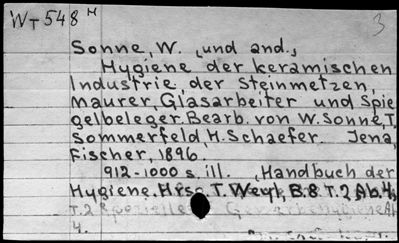 W-548 н
3
Sonne, W. und and.,
Hygiene der keramischen
Industrie, der Steinmetzen,
Maurer, Glasarbeiter und Spie
gelbeleger. Bearb. von W. Sonne, T.
Sommerfeld, H. Schaefer. Jena,
Fischer, 1896.
912-1000 s. ill. (Handbuch der
Hygiene. Hrsg. T. Weyl, B. 8 T. 2 Ab. 4,
T. 2 Spezielle Gewerbehygiene Ab
4.